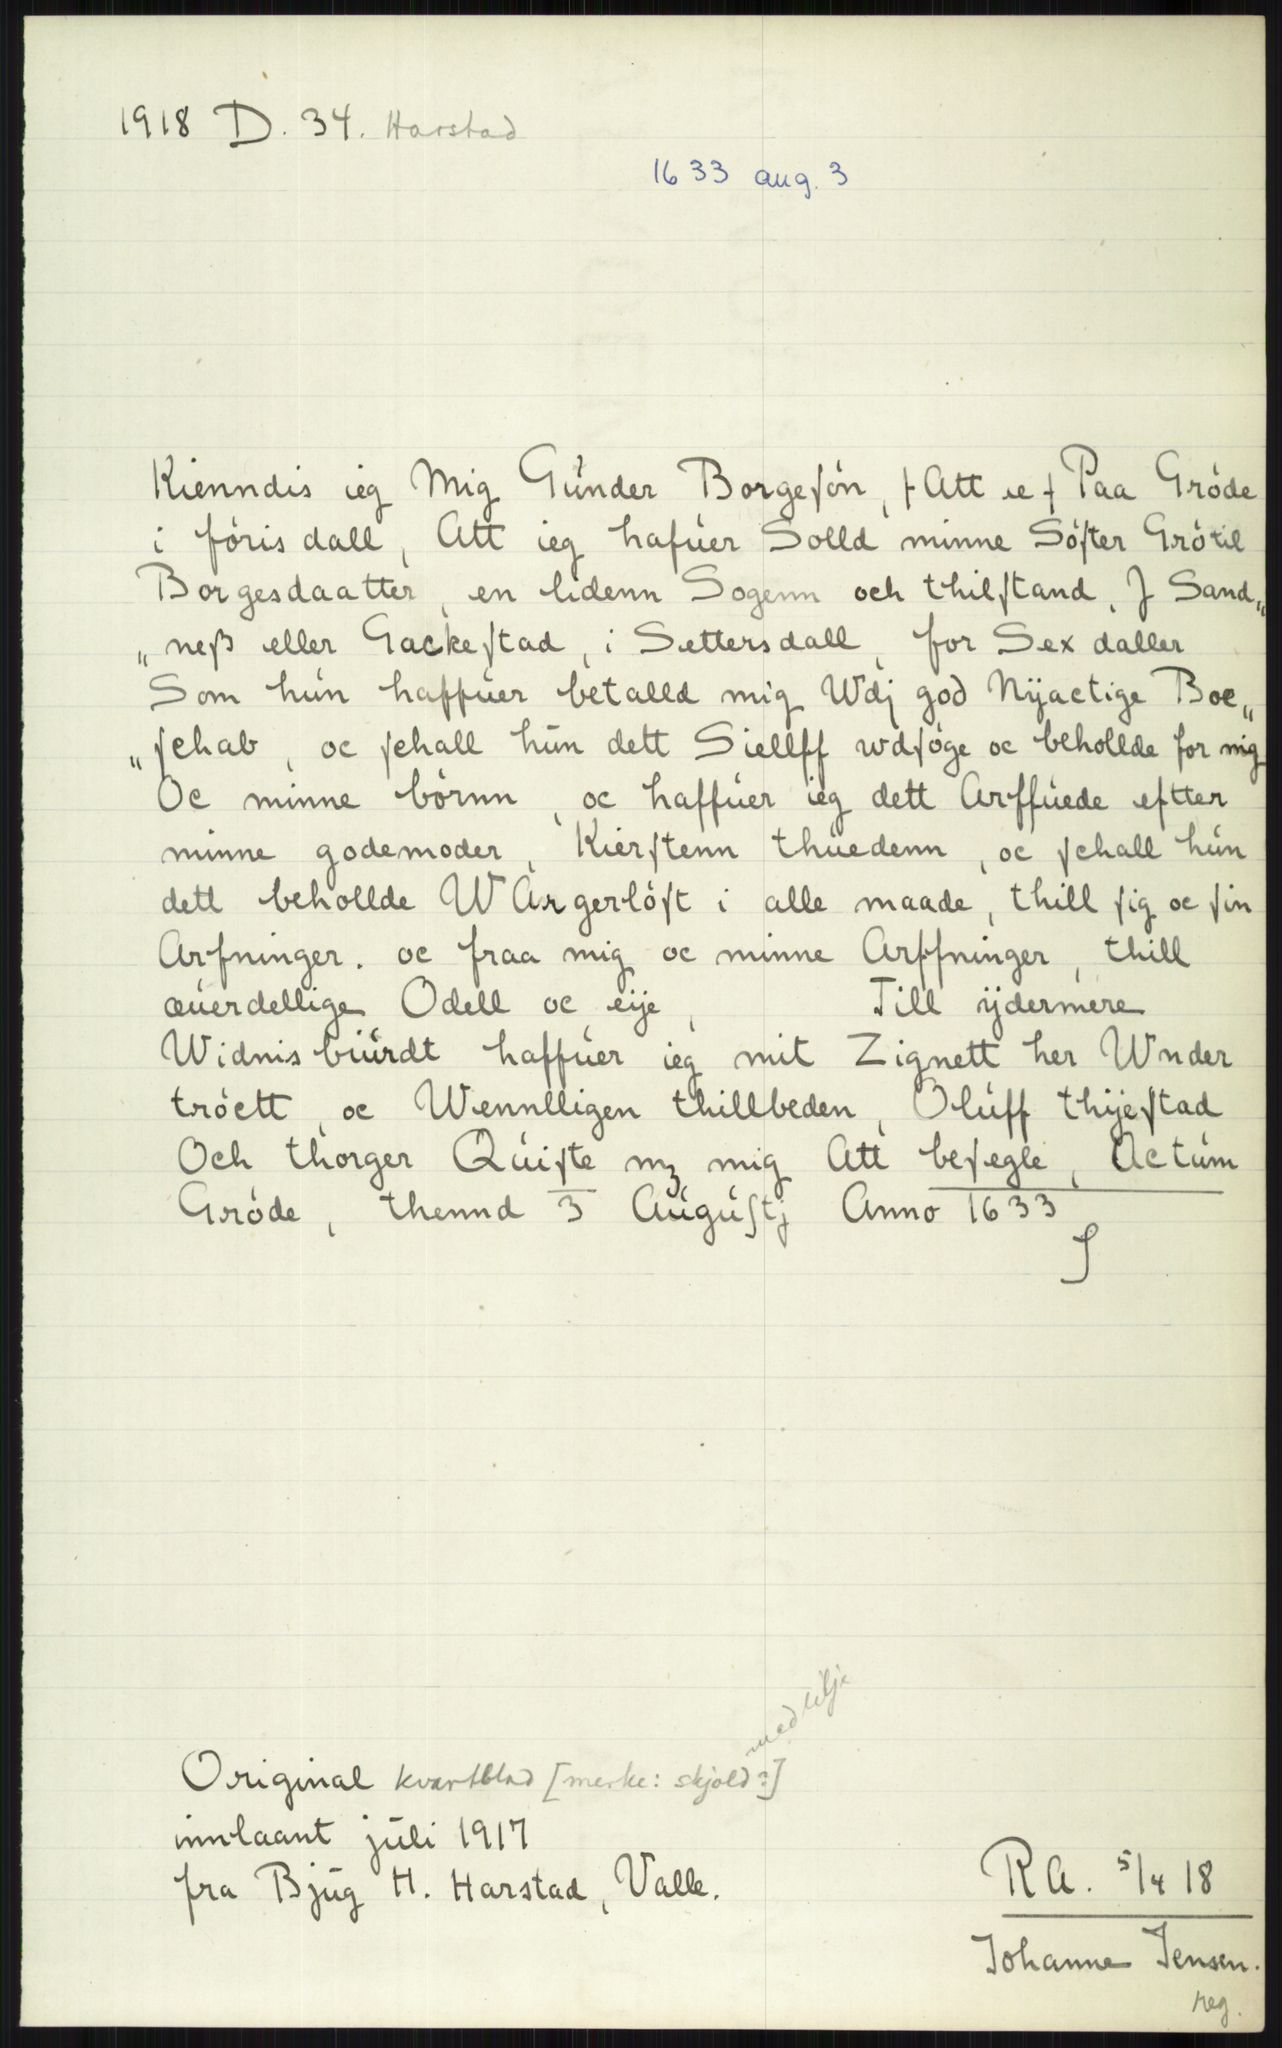 1918 D. 34. Harstad
1633 aug. 3
Kienndis ieg Mig Gúnder Borgesón, ƚ Att ie ƚ Paa Gróde
i fórisdall, Att ieg hafúer Solld minne Sóster Grótil
Borgesdaatter, en lidenn Sogenn och thilstand, J Sand„
„neß eller Gackestad, i Settersdall, for Sex daller
Som hún haffúer betalld mig Wdj god Nÿactige Boe„
„schab, oc schall hún dett Siellff wdsóge oc behollde for mig
Oc minne bórnn, oc haffúer ieg dett Arffúede efter
minne godemoder, Kierstenn thúedenn, oc schall hún
dett behollde WArgerlóst i alle maade, thill sig oc sin
Arfninger. oc fraa mig oc minne Arffninger, thill
æúerdellige Odell oc eije, Till ÿdermere
Widnisbiúrdt haffúer ieg mit Zignett her Wnder
tróctt, oc Wennlligen thillbeden, Olúff thÿestad
Och thorger Qúiste mꝫ mig Att besegle, Actúm
Gróde, thennd 3 Aúgústj Anno 1633
Original kvartblad [merke: skjold?]
med lilje
innlaant júli 1917
fra Bjúg H. Harstad, Valle.
RA. 5/4 18
Johanne Jensen.
reg.